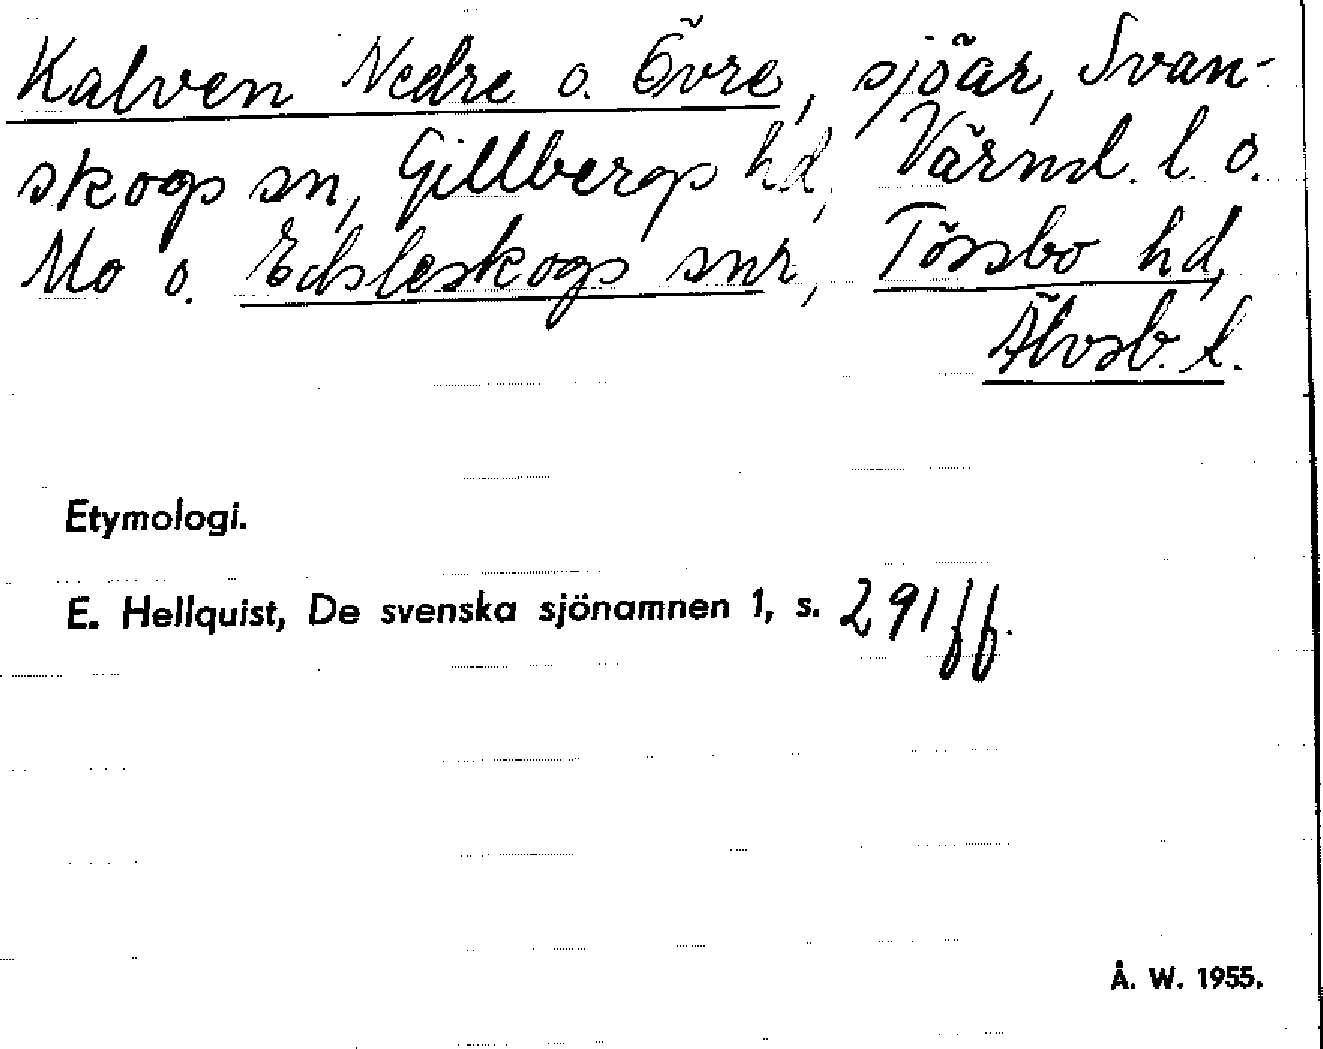 Kalven Nedre o. Övre, sjöar, Svan-
skogs sn, Gillbergs hd, Värml. l. o.
Mo o. Edsleskogs snr, Tössbo hd,
Älvsb. l.
Etymologi.
E. Hellquist, De svenska sjönamnen 1, s. 291 ff.
Å. W. 1955.